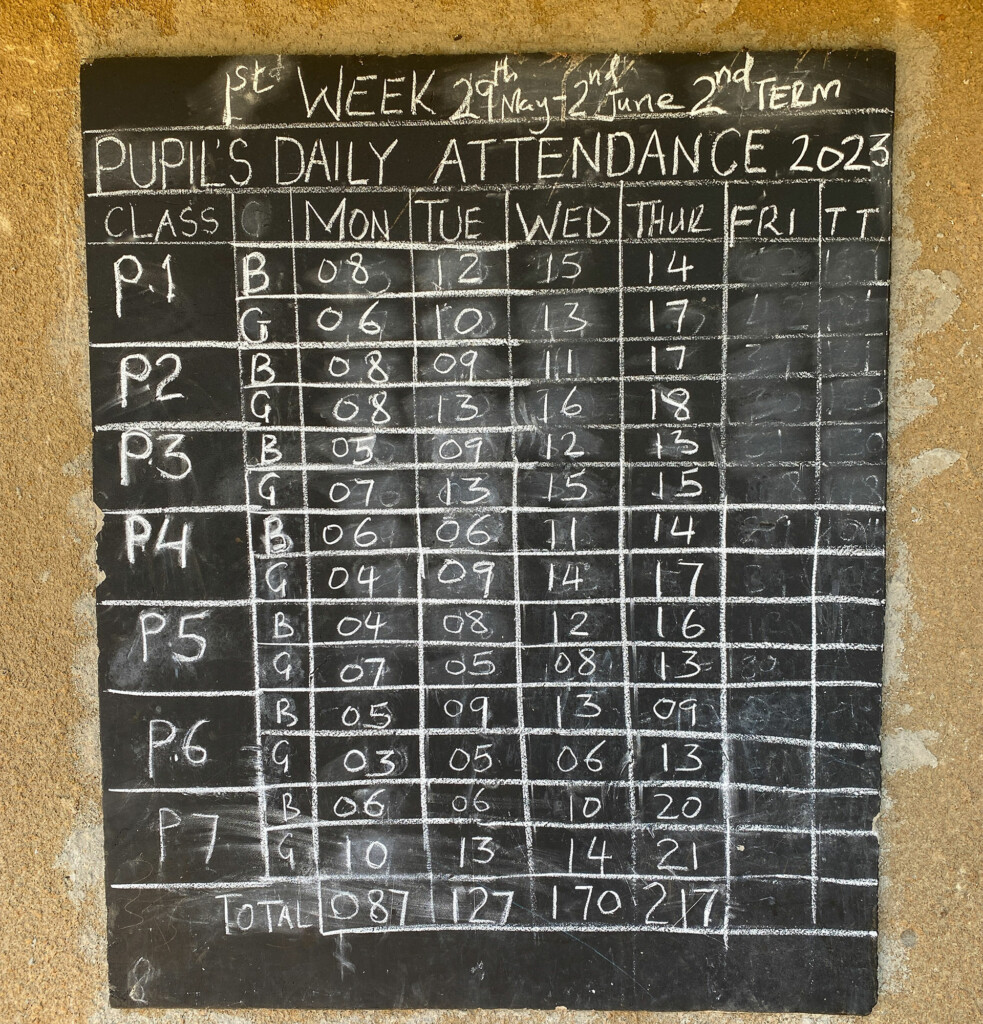 1st WEEK 29th May-2nd June 2nd TERM
PUPIL'S DAILY ATTENDANCE 2023
CLASS G MON TUE WED THUR FRI TT
P.1 B 08 12 15 14
G 06 10 13 17
P.2 B 08 09 11 17
G 08 13 16 18
P.3 B 05 09 12 13
G 07 13 15 15
P.4 B 06 06 11 14
G 04 09 14 17
P5 B 04 08 12 16
G 07 05 08 13
P.6 B 05 09 13 09
G 03 05 06 13
P.7 B 06 06 10 20
G 10 13 14 21
TOTAL 087 127 170 217
8